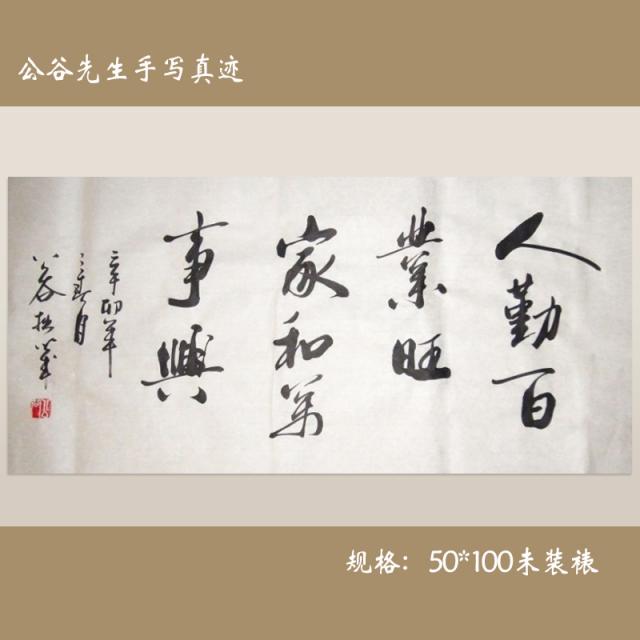 公谷先生手写真迹
人勤百
業旺
家和萬
事興
辛卯年
春月
公谷拙筆
规格：50*100未装裱